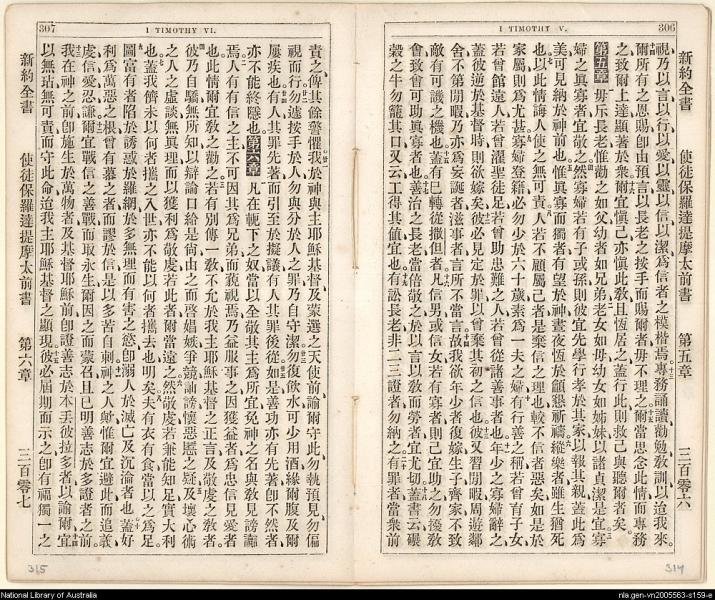 306
I TIMOTHY V.
新約全書 使徒保羅達提摩太前書 第五章 三百零六
視乃以言以行以愛以靈以信以潔爲信者之模楷焉專務誦讀勸勉敎訓以迨我來
爾所有之恩賜卽由預言以長老之按手而賜爾者毋不理之爾當思念此情而專務
之致爾上達顯著於衆爾宜愼己亦愼此敎且恆居之蓋行此則救己與聽爾者矣
第五章 毋斥長老惟勸之如父幼者如兄弟老女如母幼女如姊妹以諸貞潔是宜寡
婦之眞寡者宜敬之然寡婦若有子或孫則彼宜先學行孝於其家以報其親蓋此爲
美可見納於神前也惟眞寡而獨者有望於神晝夜恆於顧懇祈禱縱樂者雖生猶死
也以此情誨人使之無可責人若不顧屬己者是棄信之理也較不信者惡矣如是於
家屬則爲尤甚寡婦登籍必勿少於六十歲素爲一夫之婦有行善之稱若曾育子女
若曾館遠人若曾濯聖徒足若曾助患難之人若曾從諸善事者也年少之寡婦辭之
蓋彼逆於基督時則欲嫁矣彼必見定於罪以曾棄其初之信也彼又習閒暇周遊鄰
舍不第閒暇乃亦爲妄誕者滋事者言所不當言故我欲年少者復嫁生子齊家不致
敵有可譏之機也蓋有已轉從撒但者凡信男或信女若有寡者則己宜助之勿擾敎
會致會可助眞寡者也善治之長老當倍敬之於以言以敎而勞者宜尤切蓋書云碾
穀之牛勿籠其口又云工得其値宜也有訟長老非二三證者勿納之有罪者當衆前
307
I TIMOTHY VI.
責之俾其餘警懼我於神與主耶穌基督及蒙選之天使前諭爾守此勿執預見勿偏
視而行勿遽按手於人勿與分於人之罪乃自守潔勿復飲水可少用酒緣爾腹及爾
屢疾也有人其罪先著而引至於擬議有人其罪後從如是善功亦有先著卽不然者
亦不能終隱也第六章 凡在軛下之奴當以全敬其主爲所宜免神之名與敎見謗讟
焉人有有信之主不可因其爲兄弟而藐視焉乃益服事之因獲益者爲忠信見愛者
也此情爾宜敎之勸之若有別傳一敎不允於我主耶穌基督之正言及敬虔之敎者
彼乃自驕無所知以辯論口給是尙由之而啓娼嫉爭競訕謗懷惡臆之疑及壞心術
之人之虛談無眞理而以獲利爲敬虔若此者爾當遠之然敬虔若兼能知足實大利
也蓋我儕未以何者攜之入世亦不能以何者攜去也明矣夫有衣有食當以之爲足
圖富有者陷於誘惑於羅網於多無理而有害之慾卽溺人於滅亡及沉淪者也蓋好
利爲萬惡之根曾有慕之者而謬於信是以多苦自刺神之人歟惟爾宜避此而追義
虔信愛忍謙爾宜戰信之善戰而取永生爾因之而蒙召且已明善志於多證者之前
我在神之前卽施生於萬物者及基督耶穌前卽證善志於本丢彼拉多者以諭爾宜
以無玷無可責而守此命迨我主耶穌基督之顯現彼必屆期而示之卽有福獨一之
新約全書 使徒保羅達提摩太前書 第六章 三百零七
315
314
National Library of Australia
nla.gen-vn2005563-s159-e